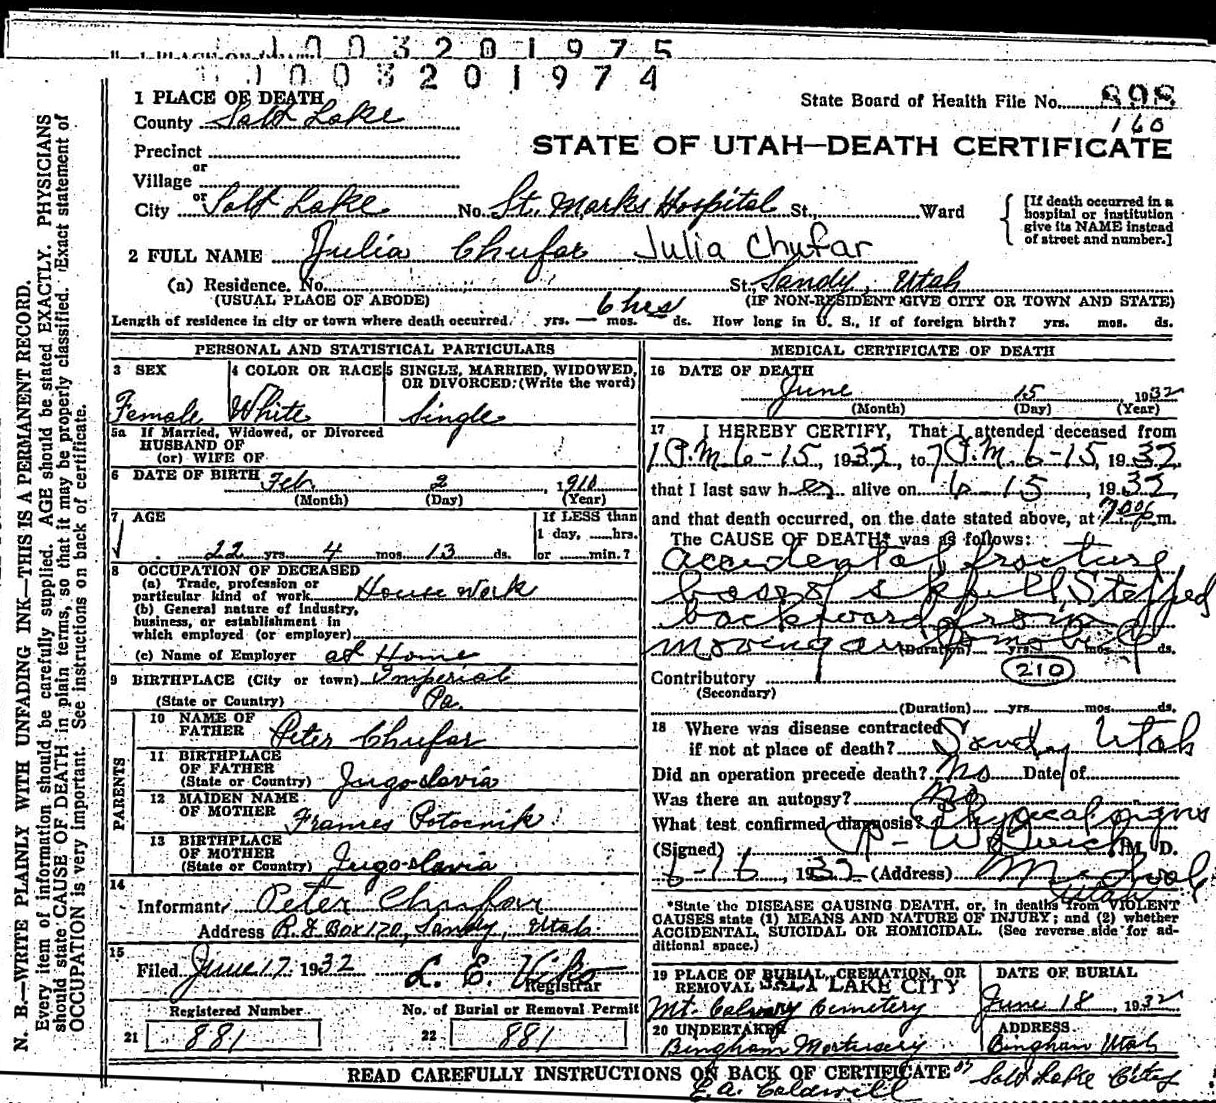 1003201975
1003201974
1 PLACE OF DEATH
County Salt Lake
State Board of Health File No. 898
160
Precinct
or
Village
STATE OF UTAH—DEATH CERTIFICATE
or
City Salt Lake No. St. Marks Hospital St., Ward
[If death occurred in a hospital or institution give its NAME instead of street and number.]
2 FULL NAME Julia Chufar Julia Chufar
(a) Residence. No. St. Sandy, Utah
(USUAL PLACE OF ABODE) (IF NON-RESIDENT GIVE CITY OR TOWN AND STATE)
Length of residence in city or town where death occurred. yrs. — mos. 6 hrs ds. How long in U. S., if of foreign birth? yrs. mos. ds.
PERSONAL AND STATISTICAL PARTICULARS
3 SEX
Female
4 COLOR OR RACE
White
5 SINGLE, MARRIED, WIDOWED, OR DIVORCED: (Write the word)
Single
5a If Married, Widowed, or Divorced
HUSBAND OF
(or) WIFE OF
6 DATE OF BIRTH Feb 2, 1910
(Month) (Day) (Year)
7 AGE
22 yrs. 4 mos. 13 ds.
If LESS than
1 day, ....hrs.
or ....min.?
8 OCCUPATION OF DECEASED
(a) Trade, profession or
particular kind of work House work
(b) General nature of industry,
business, or establishment in
which employed (or employer)
(c) Name of Employer at Home
9 BIRTHPLACE (City or town) Imperial
(State or Country) Pa.
PARENTS
10 NAME OF
FATHER Peter Chufar
11 BIRTHPLACE
OF FATHER
(State or Country) Jugo-slavia
12 MAIDEN NAME
OF MOTHER Frances Potocnik
13 BIRTHPLACE
OF MOTHER
(State or Country) Jugo-slavia
14
Informant Peter Chufar
Address R. F. Box 170, Sandy, Utah
15
Filed June 17 1932 L. E. Viko
Registrar
Registered Number No. of Burial or Removal Permit
21 881 22 881
MEDICAL CERTIFICATE OF DEATH
16 DATE OF DEATH
June 15 1932
(Month) (Day) (Year)
17 I HEREBY CERTIFY, That I attended deceased from
1 P.M 6-15, 1932, to 7 P.M. 6-15, 1932,
that I last saw her alive on 6-15, 1932
and that death occurred, on the date stated above, at 7:00 P m.
The CAUSE OF DEATH* was as follows:
accidental fracture
base of skull Stepped
backward from
moving automobile
(Duration) yrs. mos. ds.
Contributory 210
(Secondary)
(Duration) yrs. mos. ds.
18 Where was disease contracted
if not at place of death? Sandy Utah
Did an operation precede death? No Date of
Was there an autopsy? No
What test confirmed diagnosis? Physical signs
(Signed) M. D.
6-16, 1932 (Address) Midvale
Utah
*State the DISEASE CAUSING DEATH, or, in deaths from VIOLENT
CAUSES state (1) MEANS AND NATURE OF INJURY; and (2) whether
ACCIDENTAL, SUICIDAL OR HOMICIDAL. (See reverse side for ad-
ditional space.)
19 PLACE OF BURIAL, CREMATION, OR
REMOVAL SALT LAKE CITY
Mt. Calvary Cemetery
DATE OF BURIAL
June 18, 1932
20 UNDERTAKER
Bingham Mortuary
ADDRESS
Bingham Utah
READ CAREFULLY INSTRUCTIONS ON BACK OF CERTIFICATE
E. A. Caldwell Salt Lake City
N. B.—WRITE PLAINLY WITH UNFADING INK—THIS IS A PERMANENT RECORD.
Every item of information should be carefully supplied. AGE should be stated EXACTLY. PHYSICIANS
should state CAUSE OF DEATH in plain terms, so that it may be properly classified. Exact statement of
OCCUPATION is very important. See instructions on back of certificate.